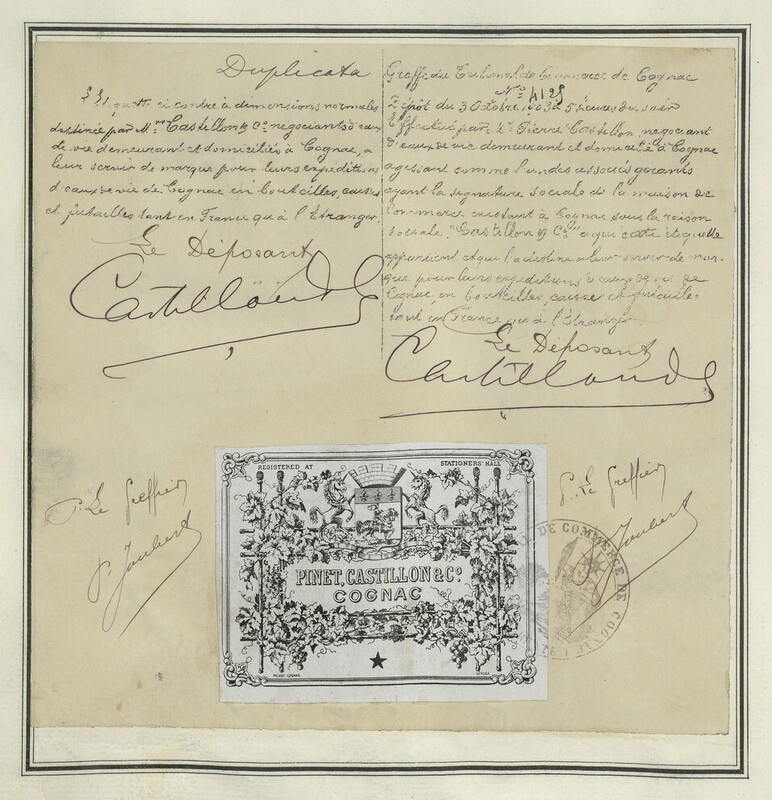 Duplicata
L'Etiquette ci contre à dimensions normales
destinée par Mrs Castillon & Co négociants d'eaux
de vie demeurant et domiciliés à Cognac, a
leur servir de marque pour leurs expéditions
d'eaux de vie de Cognac en bouteilles, caisses
et futailles tant en France qu'à l'Etranger
Le Déposant
Castillon & Co
P. Le Greffier
P. Joubert
Greffe du Tribunal de Commerce de Cognac
No 4125
Dépôt du 3 Octobre à 5 heures du soir
Effectué par Pierre Castillon, négociant
d'eaux de vie demeurant et domicilié à Cognac
agissant comme l'un des associés gérants
ayant la signature sociale de la maison de
Commerce existant à Cognac sous la raison
sociale "Castillon & Co" a qui cette étiquette
appartient et qui l'a destinée a leur servir de mar-
que pour leurs expéditions d'eaux de vie de
Cognac, en bouteilles, caisses et futailles
tant en France qu'à l'Etranger
Le Déposant
Castillon & Co
P. Le Greffier
Joubert
REGISTERED AT STATIONERS' HALL
PINET, CASTILLON & Co.
COGNAC
DE COMMERCE DE COGNAC